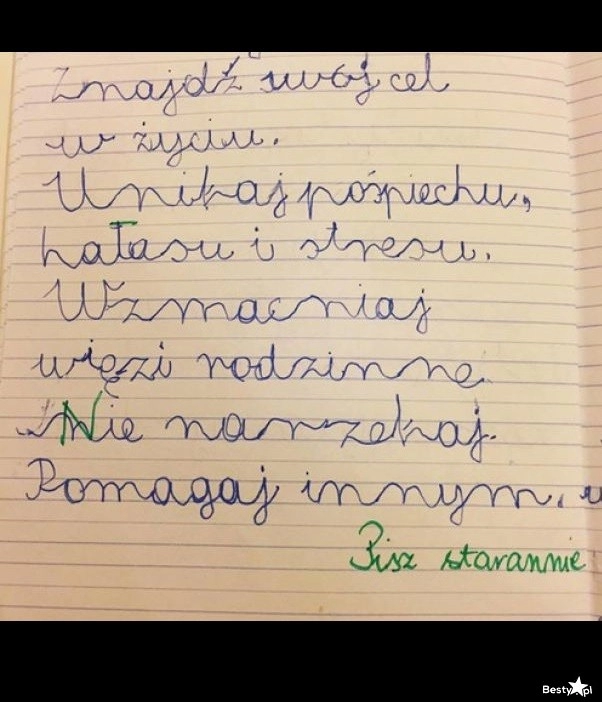 Znajdź swój cel
w życiu.
Unikaj pośpiechu,
hałasu i stresu.
Wzmacniaj
więzi rodzinne.
Nie narzekaj.
Pomagaj innym.
Pisz starannie